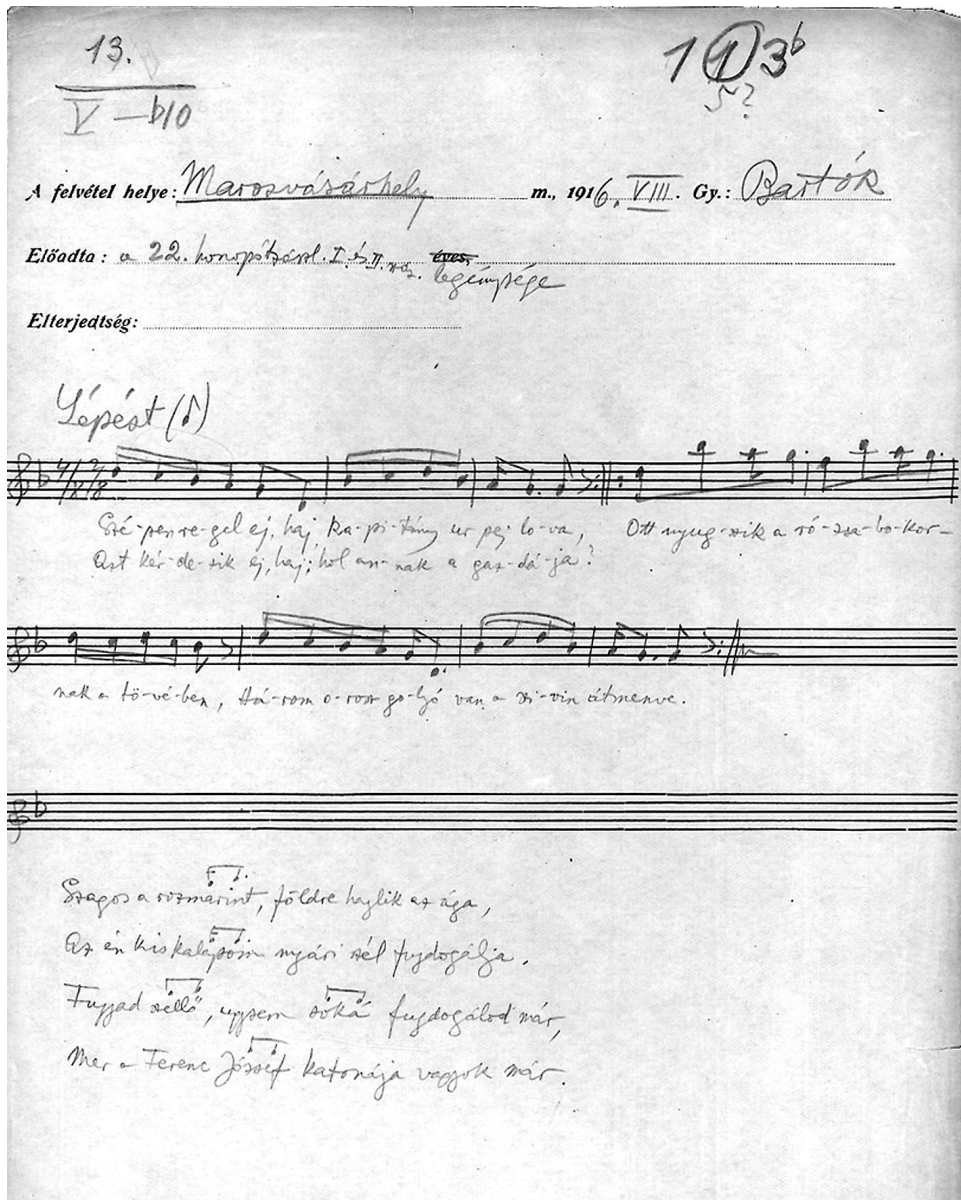 13.
V – b10
1 1 3b
5?
A felvétel helye: Marosvásárhely m., 1916. VIII. Gy.: Bartók
Előadta: a 22. honvéd I. és II. éves
legénysége
Elterjedtség:
Lépést
4/8 2/8
Szé-pen re-gel ej, haj ka-pi-tány ur pej lo-va, Ott nyug-szik a ró-zsa-bo-kor-
Azt kér-de-zik ej, haj; hol an-nak a gaz-dá-ja?
nak a tö-vé-ben, Há-rom o-rosz go-lyó van a szi-vin átmenve.
Szagos a rozmarint, földre hajlik az ága,
Az én kis kalapom nyári szél fujdogálja.
Fujjad szellő, ugysem soká fujdogálod már,
Mer a Ferenc József katonája vagyok már.